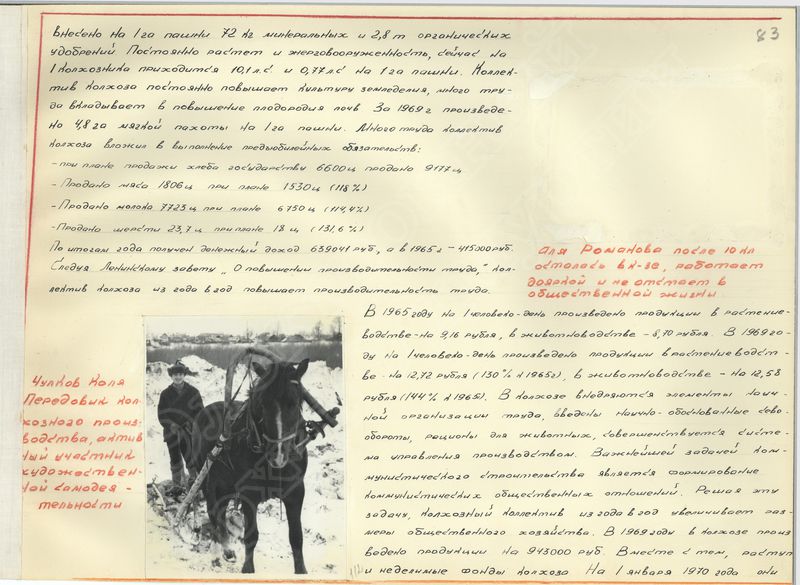 83
внесено на 1 га пашни 72 кг минеральных и 2,8 т органических
удобрений. Постоянно растет и энерговооруженность, сейчас на
1 колхозника приходится 10,1 л.с и 0,77 л.с на 1 га пашни. Коллек-
тив колхоза постоянно повышает культуру земледелия, много тру-
да вкладывает в повышение плодородия почв. За 1969 г произведе-
но 4,8 га мягкой пахоты на 1 га пашни. Много труда коллектив
колхоза вложил в выполнение предъюбилейных обязательств:
- при плане продажи хлеба государству 6600 ц продано 9177 ц
- Продано мяса 1806 ц при плане 1530 ц (118 %)
- Продано молока 7723 ц при плане 6750 ц (114,4%)
- Продано шерсти 23,7 ц при плане 18 ц (131,6%)
По итогам года получен денежный доход 639041 руб, а в 1965 г - 415000 руб.
Следуя Ленинскому завету „О повышении производительности труда," кол-
лектив колхоза из года в год повышает производительность труда.
Аля Романова после 10 кл
осталась в к-зе, работает
дояркой и не отстает в
общественной жизни
В 1965 году на 1 человеко-день произведено продукции в растение-
водстве - на 9,16 рубля, в животноводстве - 8,70 рубля. В 1969 го-
ду на 1 человеко-день произведено продукции в растениеводст-
ве - на 12,72 рубля (130% к 1965 г), в животноводстве - на 12,58
рубля (144% к 1965). В колхозе внедряются элементы науч-
ной организации труда, введены научно-обоснованные сево-
обороты, рационы для животных, совершенствуется систе-
ма управления производством. Важнейшей задачей ком-
мунистического строительства является формирование
коммунистических общественных отношений. Решая эту
задачу, колхозный коллектив из года в год увеличивает раз-
меры общественного хозяйства. В 1969 году в колхозе произ
ведено продукции на 943000 руб. Вместе с тем, растут
и неделимые фонды колхоза. На 1 января 1970 года они
Чулков Коля
Передовик кол-
хозного произ-
водства, актив
ный участник
художествен-
ной самодея -
тельности